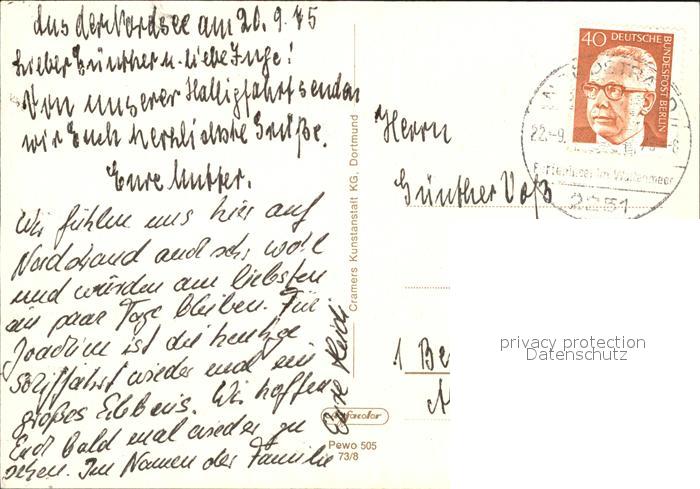 Aus der Nordsee am 20.9.75
Lieber Günther u. liebe Inge!
Von unserer Halligfahrt senden
wir Euch herzlichste Grüße.
Eure Mutter.
Wir fühlen uns hier auf
Nordstrand auch sehr wohl
und würden am liebsten
ein paar Tage bleiben. Für
Joachim ist die heutige
Schiffahrt wieder mal ein
großes Erlebnis. Wir hoffen
Euch bald mal wieder zu
sehen. Im Namen der Familie
Eure Heidi
Cramers Kunstanstalt KG, Dortmund
Pewo 505
73/8
40 DEUTSCHE
BUNDESPOST BERLIN
NORDSTRAND
22.-9.
im Wattenmeer
2251
Herrn
Günther Voß
1 Be
privacy protection
Datenschutz